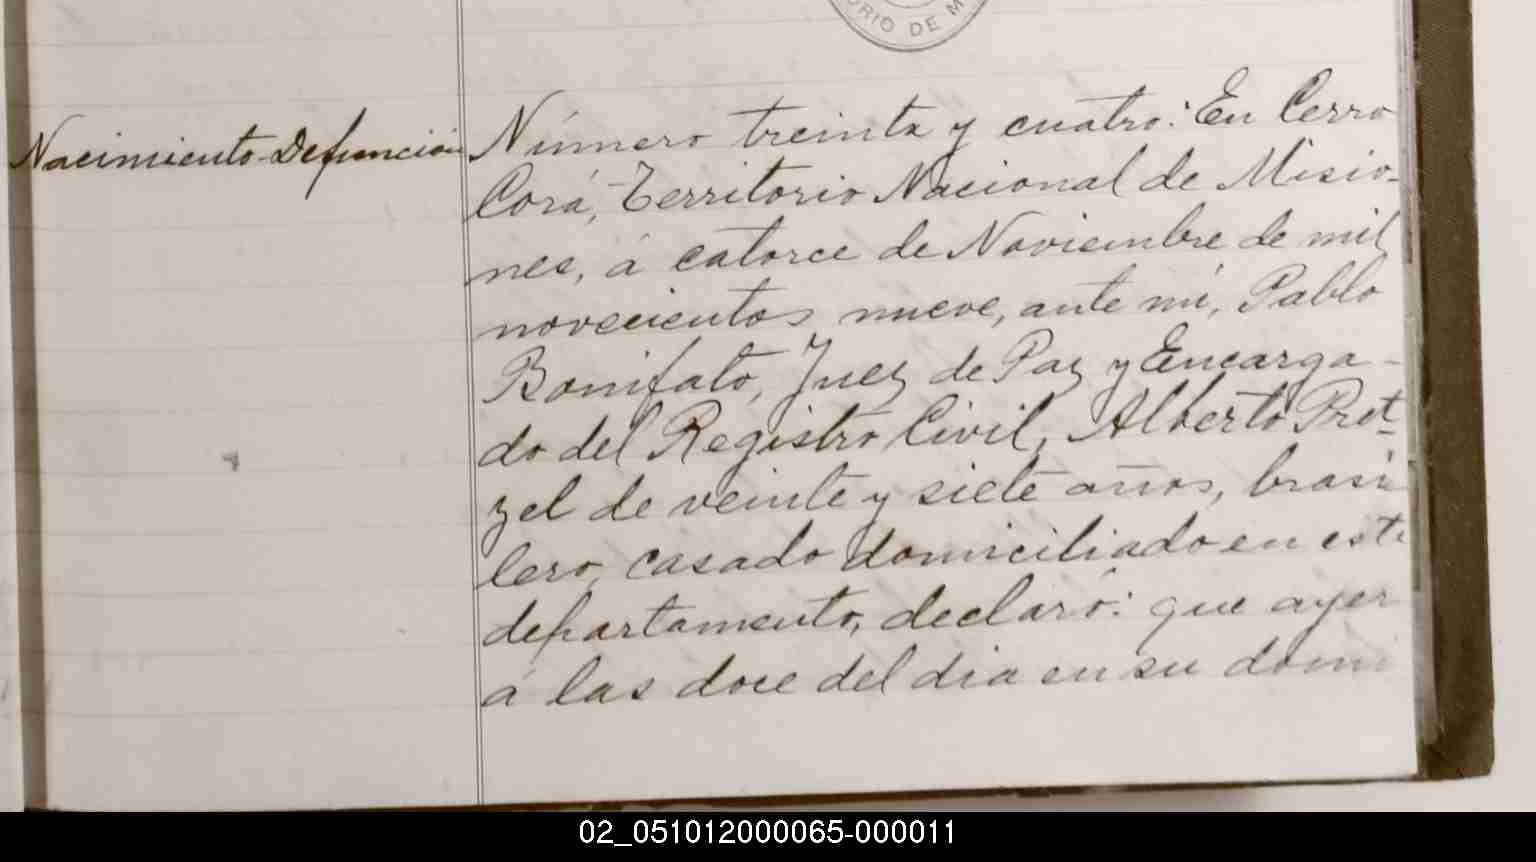 ORIO DE M
Nacimiento-Defunción
Número treinta y cuatro: En Cerro
Corá, Territorio Nacional de Misio-
nes, á catorce de Noviembre de mil
novecientos nueve, ante mí, Pablo
Bonifato, Juez de Paz y Encarga-
do del Registro Civil, Alberto Pret-
zel de veinte y siete años, brasi
lero, casado domiciliado en este
departamento, declaró: que ayer
á las doce del dia en su domi
02_051012000065-000011